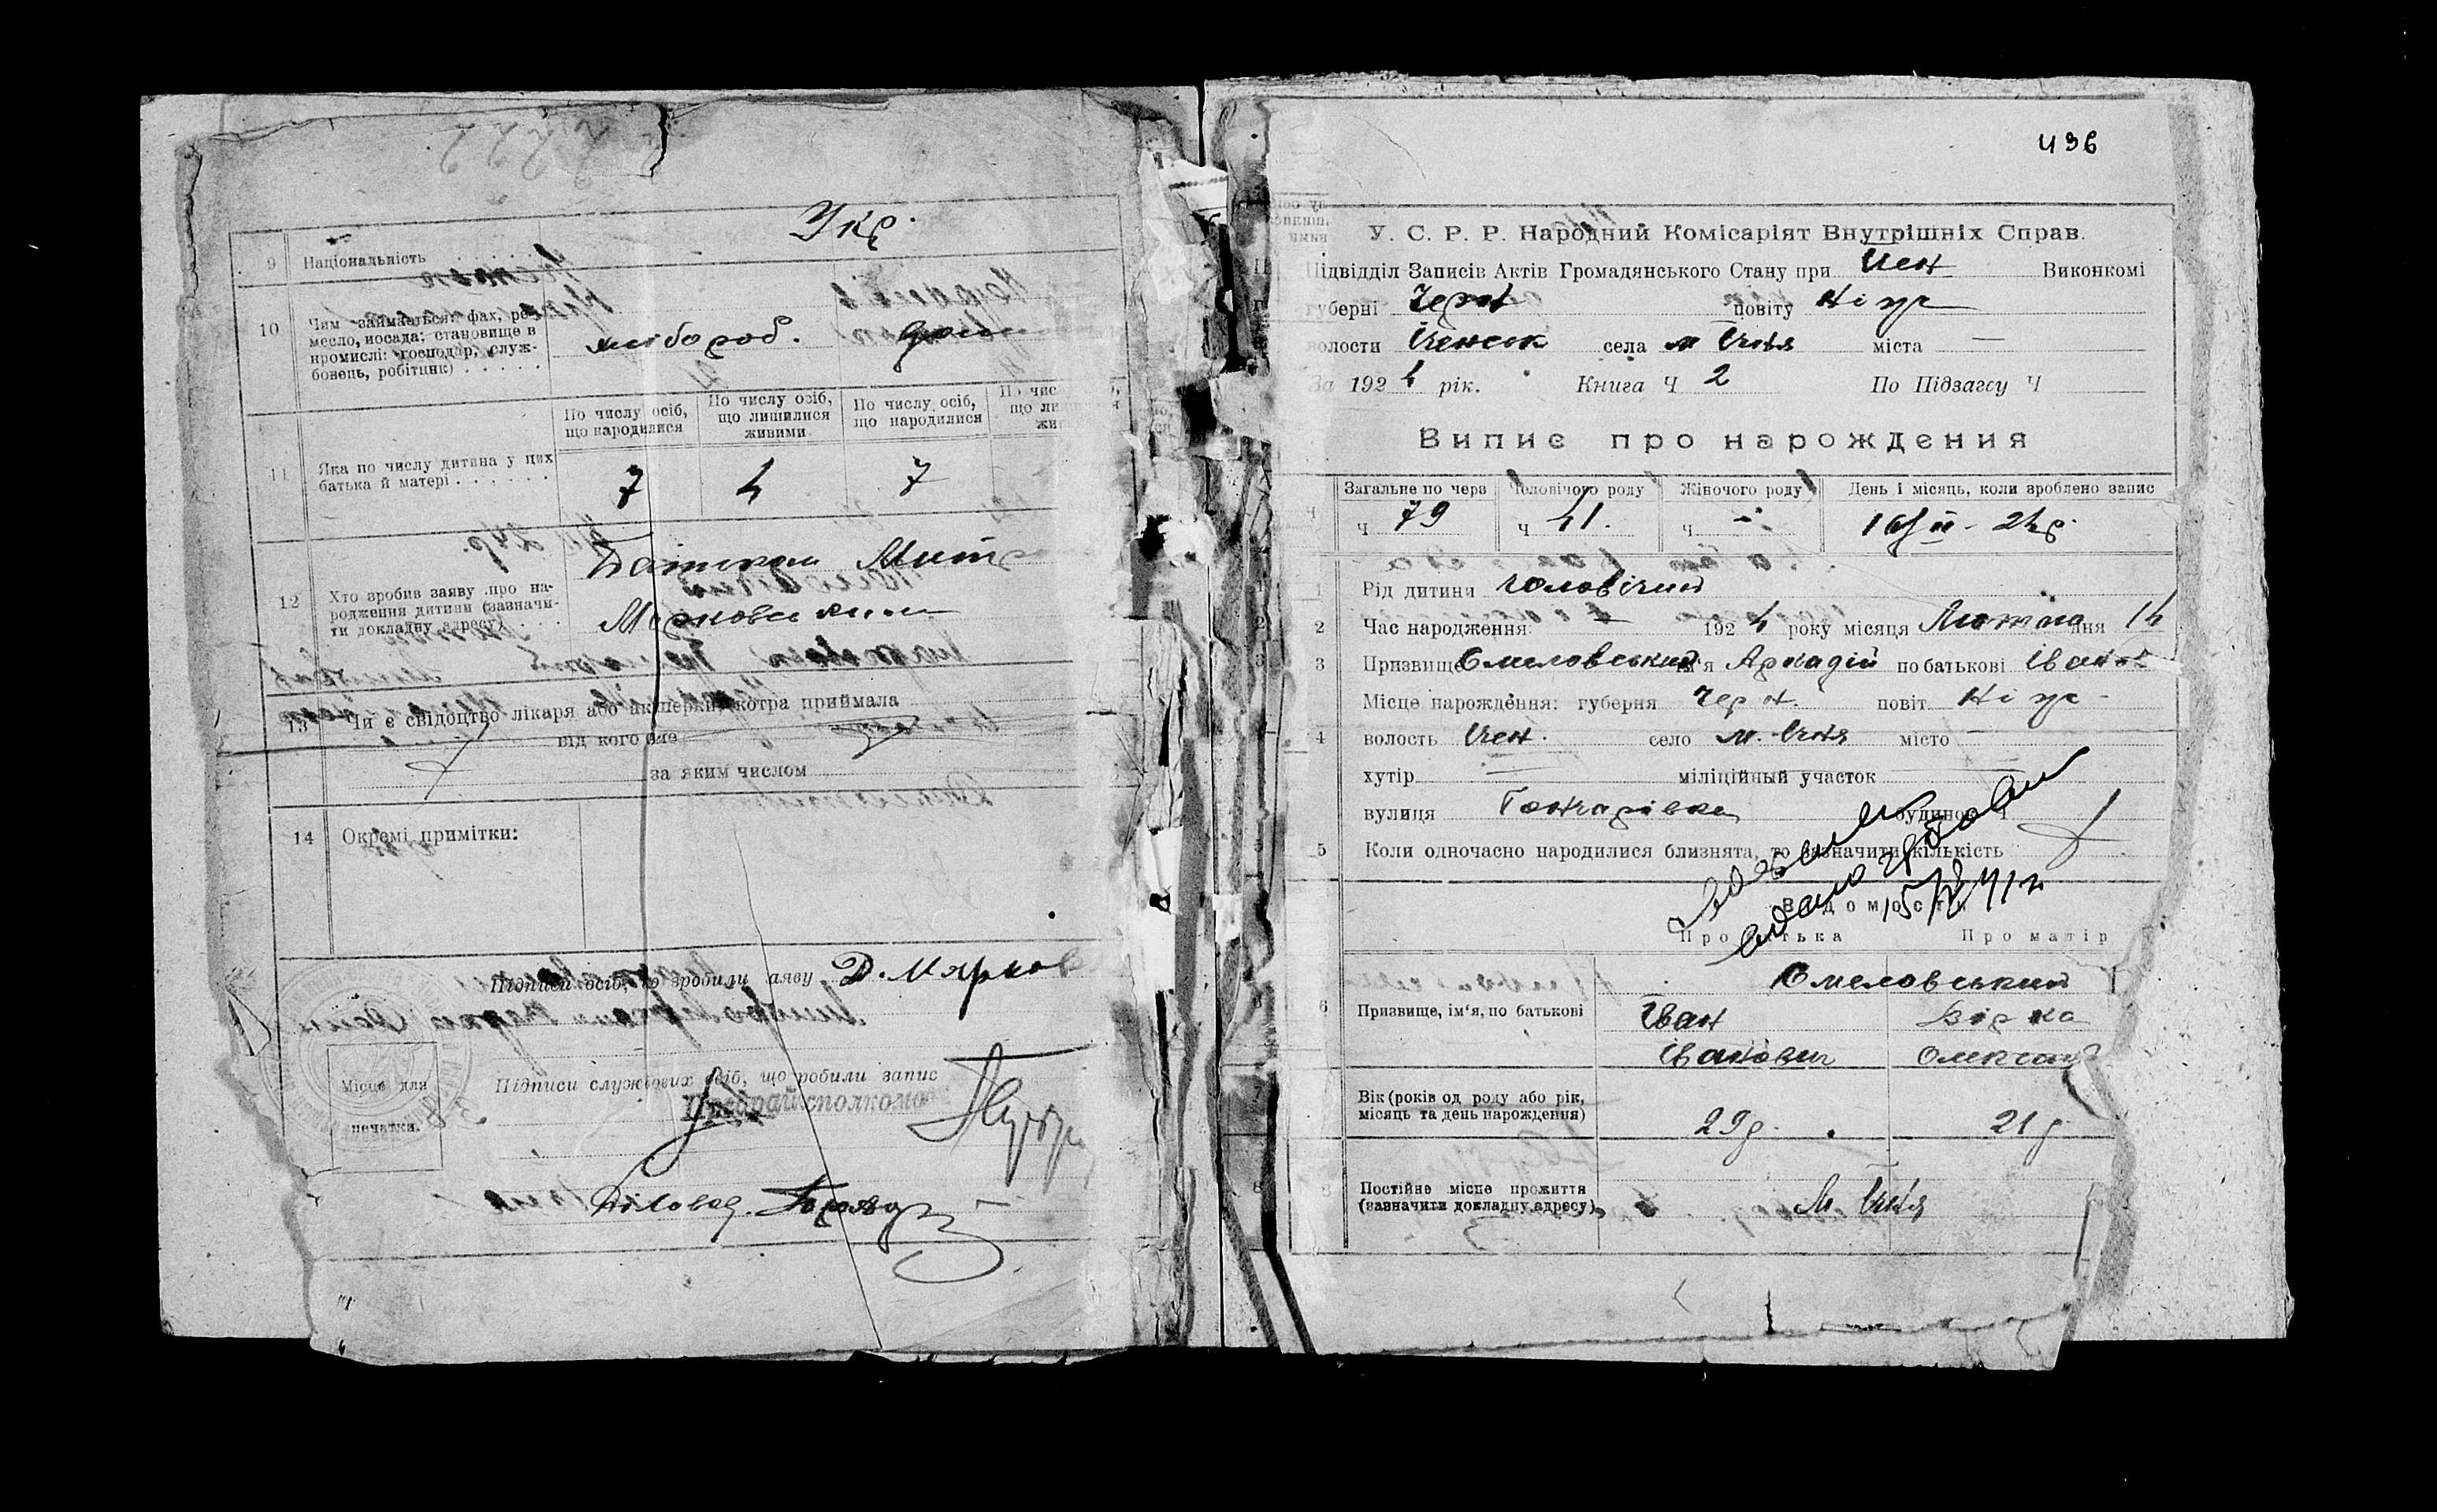 Укр.
9 Національність
10 Чим займається: фах, ре-
месло, посада; становище в
промислі: господар, служ-
бовець, робітник)
хлібороб.
По числу осіб, що народилися
По числу осіб, що лишилися живими
По числу осіб, що народилися
11 Яка по числу дитина у цих
батька й матері
7 4 7
12 Хто зробив заяву про на-
родження дитини (зазначи-
ти докладну адресу)
Батьком
13 Чи є свідоцтво лікаря або акушерки, котра приймала
від кого оне
за яким числом
14 Окремі примітки:
Підписи осіб, що зробили заяву Д. Марков
Місце для
печатки.
Підписи службових осіб, що робили запис
Предрайисполкома
Діловод.
436
У. С. Р. Р. Народний Комісаріят Внутрішніх Справ.
Підвідділ Записів Актів Громадянського Стану при Ічен Виконкомі
губерні Черн повіту Ніж
волости Іченськ села м Ічня міста —
За 1924 рік. Книга Ч 2 По Підзагсу Ч
Випис про нарождения
Загальне по черз Ч 79
Чоловічого роду Ч 41.
Жіночого роду Ч -
День і місяць, коли зроблено запис 16/II - 24р.
1 Рід дитини Чоловічий
2 Час народження: — 1924 року місяця Лютого дня 14
3 Призвище Омеловський ім'я Аркадій по батькові Іван
4 Місце нарождення: губерня Черн. повіт Ніж -
волость Ічен. село м. Ічня місто —
хутір — міліційный участок —
вулиця Гончарівка будинок Ч
5 Коли одночасно народилися близнята, то зазначити кількість
Відомості
Про батька Про матір
6 Призвище, ім'я, по батькові
Омеловський
Іван
Іванович
Вірка
Олексан
7 Вік (років од роду або рік,
місяць та день нарождення)
29р. 21р.
8 Постійне місце прожиття
(зазначити докладну адресу)
М Ічня